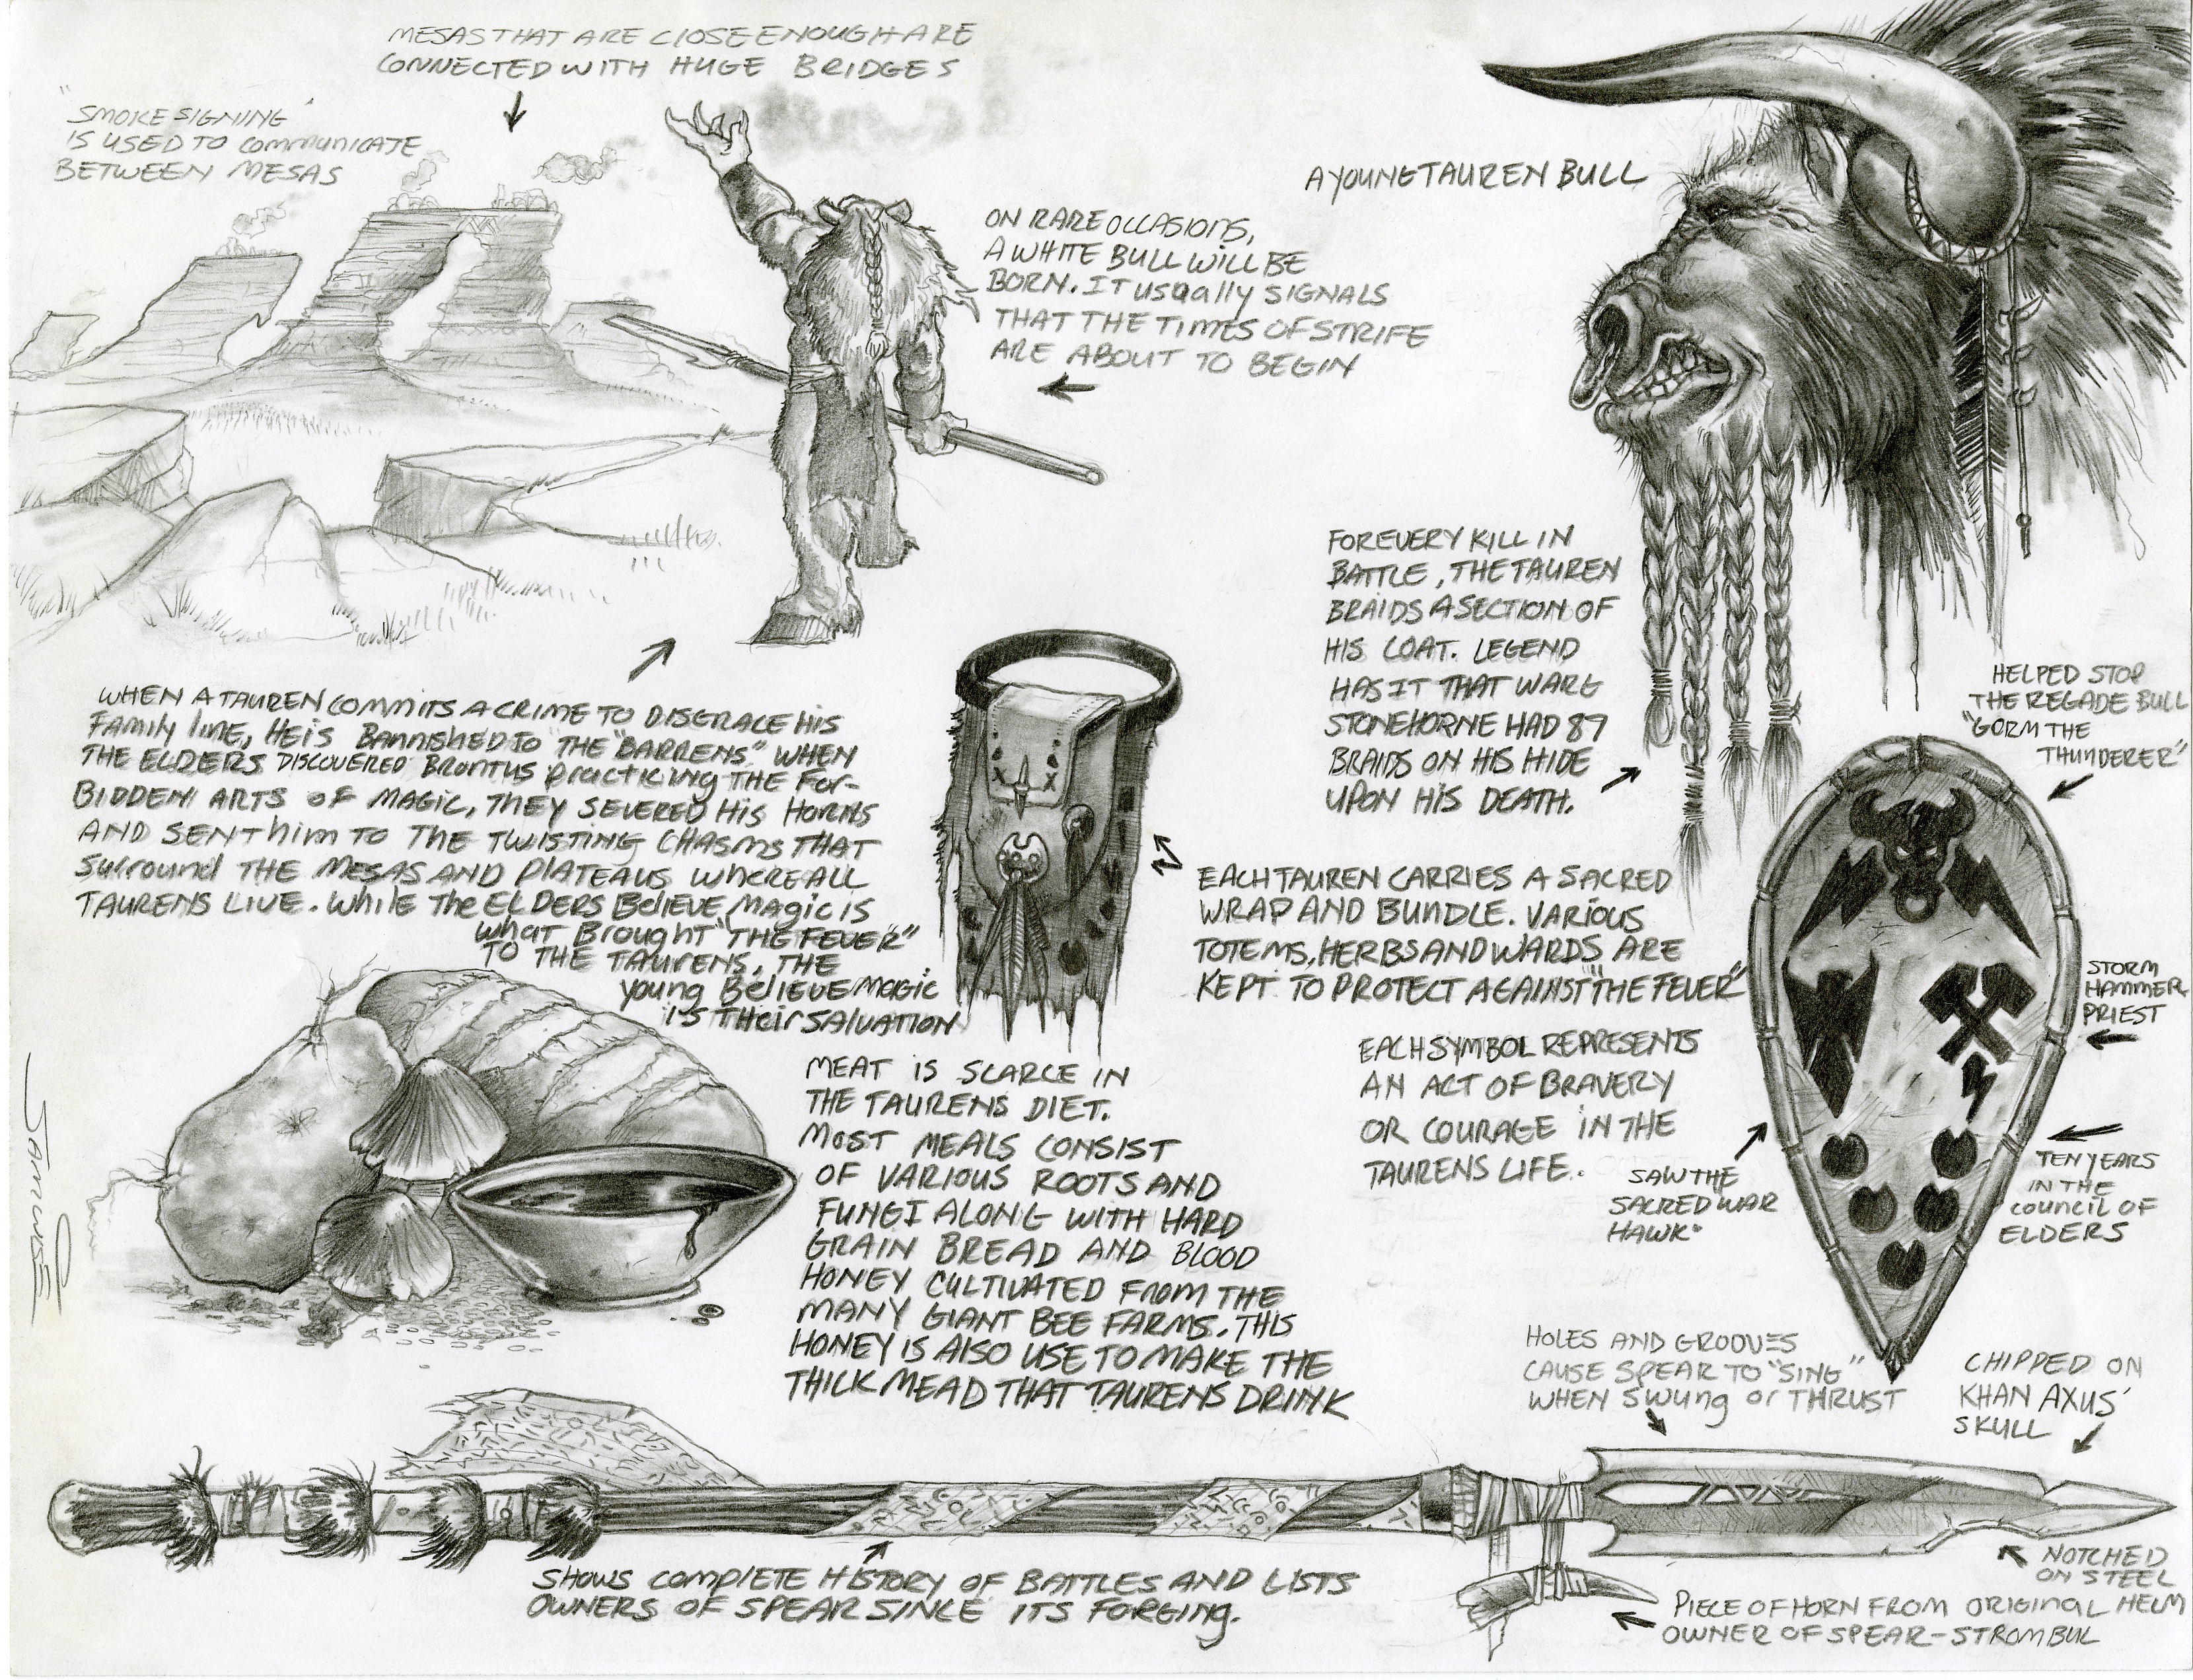 MESAS THAT ARE CLOSE ENOUGH ARE
CONNECTED WITH HUGE BRIDGES
"SMOKE SIGNING"
IS USED TO COMMUNICATE
BETWEEN MESAS
A YOUNG TAUREN BULL
ON RARE OCCASIONS,
A WHITE BULL WILL BE
BORN. IT USUALLY SIGNALS
THAT THE TIMES OF STRIFE
ARE ABOUT TO BEGIN
FOR EVERY KILL IN
BATTLE, THE TAUREN
BRAIDS A SECTION OF
HIS COAT. LEGEND
HAS IT THAT WARG
STONEHORNE HAD 87
BRAIDS ON HIS HIDE
UPON HIS DEATH.
WHEN A TAUREN COMMITS A CRIME TO DISGRACE HIS
FAMILY LINE, HE IS BANNISHED TO THE "BARRENS". WHEN
THE ELDERS DISCOVERED BRONTUS PRACTICING THE FOR-
BIDDEN ARTS OF MAGIC, THEY SEVERED HIS HORNS
AND SENT HIM TO THE TWISTING CHASMS THAT
SURROUND THE MESAS AND PLATEAUS WHERE ALL
TAURENS LIVE. WHILE THE ELDERS BELIEVE MAGIC IS
WHAT BROUGHT "THE FEVER"
TO THE TAURENS, THE
YOUNG BELIEVE MAGIC
IS THEIR SALVATION
HELPED STOP
THE REGADE BULL
"GORM THE
THUNDERER"
EACH TAUREN CARRIES A SACRED
WRAP AND BUNDLE. VARIOUS
TOTEMS, HERBS AND WARDS ARE
KEPT TO PROTECT AGAINST "THE FEVER"
STORM
HAMMER
PRIEST
EACH SYMBOL REPRESENTS
AN ACT OF BRAVERY
OR COURAGE IN THE
TAURENS LIFE.
SAW THE
SACRED WAR
HAWK"
TEN YEARS
IN THE
COUNCIL OF
ELDERS
MEAT IS SCARCE IN
THE TAURENS DIET.
MOST MEALS CONSIST
OF VARIOUS ROOTS AND
FUNGI ALONG WITH HARD
GRAIN BREAD AND BLOOD
HONEY CULTIVATED FROM THE
MANY GIANT BEE FARMS. THIS
HONEY IS ALSO USE TO MAKE THE
THICK MEAD THAT TAURENS DRINK
SAMWISE
HOLES AND GROOVES
CAUSE SPEAR TO "SING"
WHEN SWUNG OR THRUST
CHIPPED ON
KHAN AXUS'
SKULL
SHOWS COMPLETE HISTORY OF BATTLES AND LISTS
OWNERS OF SPEAR SINCE ITS FORGING.
NOTCHED
ON STEEL
PIECE OF HORN FROM ORIGINAL HELM
OWNER OF SPEAR-STROMBUL